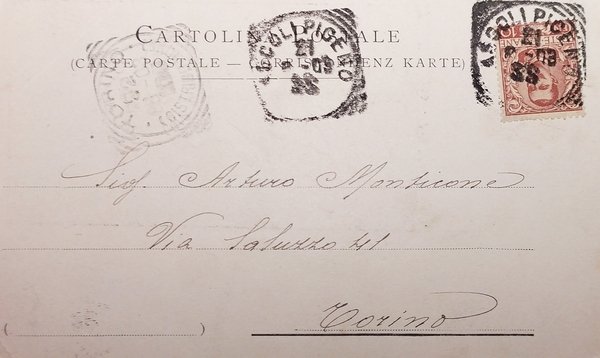 CARTOLINA POSTALE
(CARTE POSTALE — CORRISPONDENZ KARTE)
ASCOLI PICENO
ASCOLI PICENO
TORINO
Sig. Arturo Monticone
Via Saluzzo 41
Torino